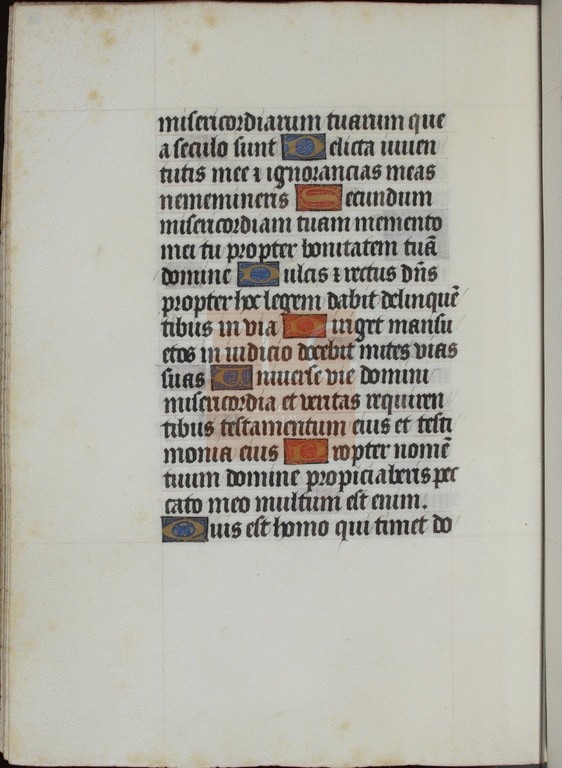 misericordiarum tuarum que
a seculo sunt Delicta iuuen
tutis mee ⁊ ignorancias meas
nememineris Secundum
misericordiam tuam memento
mei tu propter bonitatem tuā
domine Dulcis ⁊ rectus dn̄s
propter hoc legem dabit delinquē
tibus in via Diriget mansu
etos in iudicio docebit mites vias
suas Uniuerse vie domini
misericordia et veritas requiren
tibus testamentum eius et testi
monia eius Propter nomē
tuum domine propiciaberis pec
cato meo multum est enim.
Quis est homo qui timet do